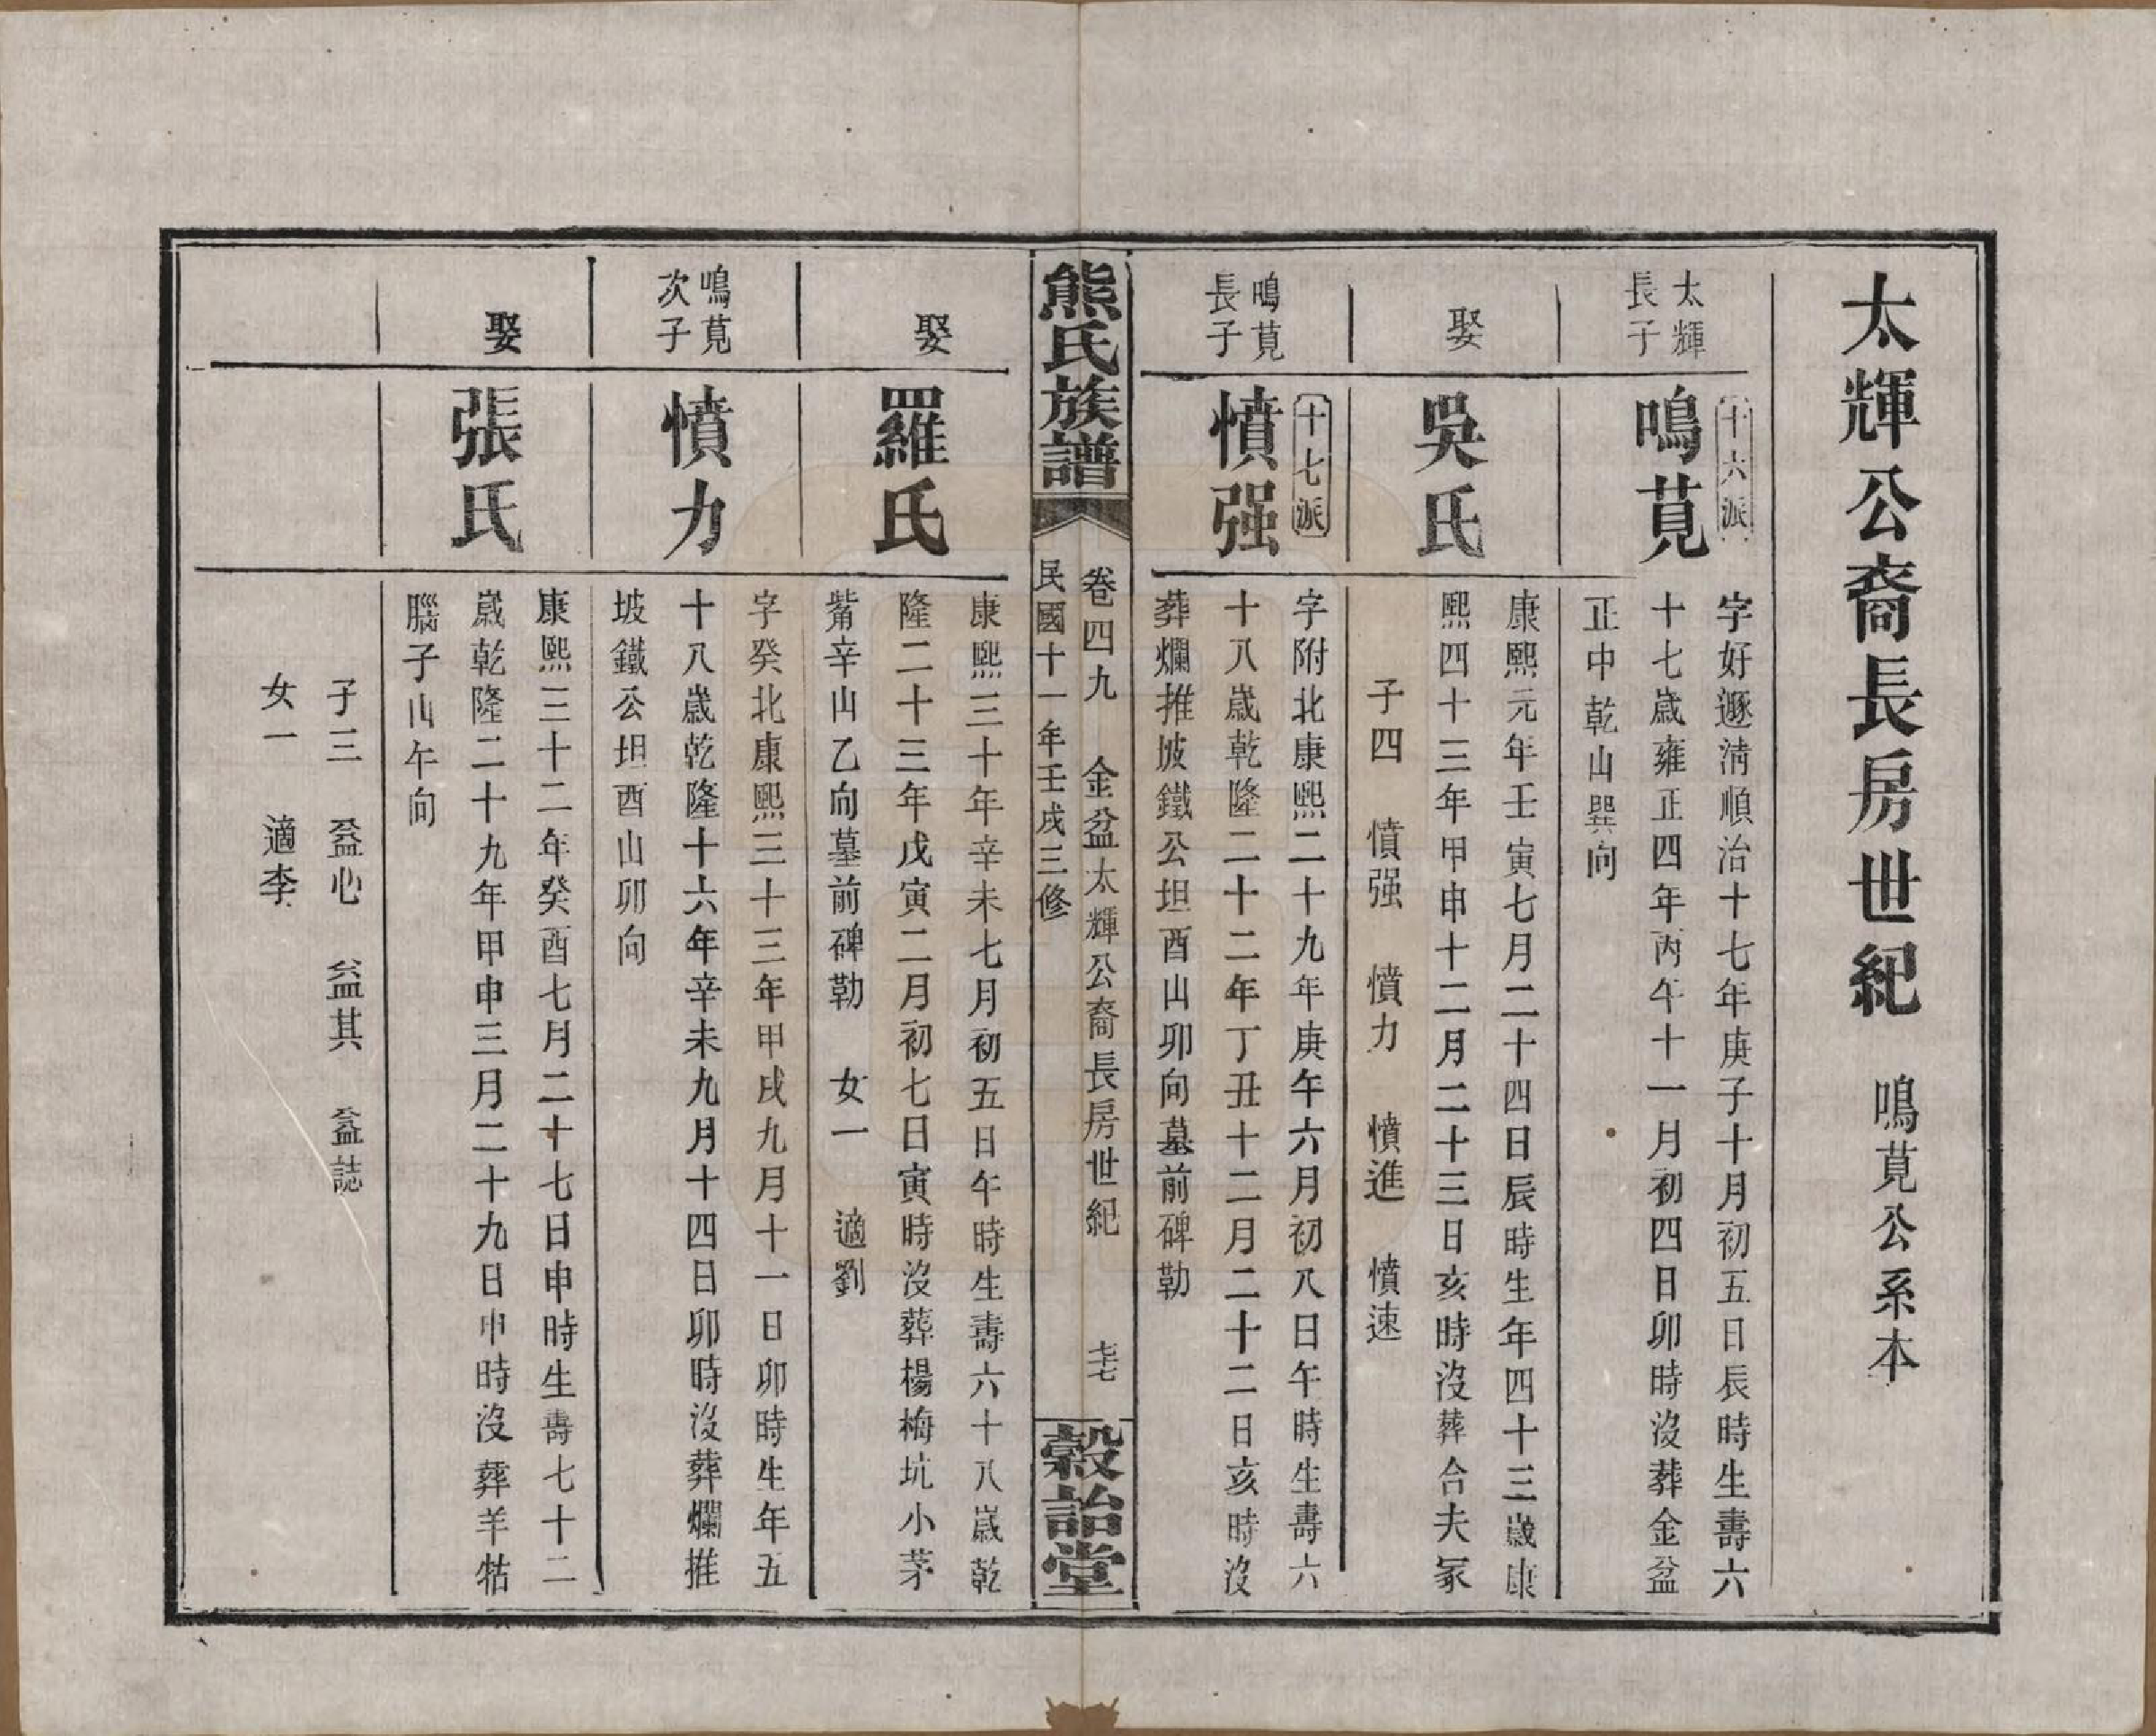 太輝公裔長房世紀 鳴莧公系本
太輝
長子
十六派
鳴莧
字好遯淸順治十七年庚子十月初五日辰時生壽六
十七歲雍正四年丙午十一月初四日卯時沒葬金盆
正中乾山巽向
娶
吳氏
康熙元年壬寅七月二十四日辰時生年四十三歲康
熙四十三年甲申十二月二十三日亥時沒葬合夫冢
子四 憤强 憤力 憤進 憤速
鳴莧
長子
十七派
憤强
字附北康熙二十九年庚午六月初八日午時生壽六
十八歲乾隆二十二年丁丑十二月二十二日亥時沒
葬爛推坡鐵公坦酉山卯向墓前碑勒
熊氏族譜
卷四九 金盆太輝公裔長房世紀
民國十一年壬戌三修
穀詒堂
娶
羅氏
康熙三十年辛未七月初五日午時生壽六十八歲乾
隆二十三年戊寅二月初七日寅時沒葬楊梅坑小茅
觜辛山乙向墓前碑勒 女一 適劉
鳴莧
次子
憤力
字癸北康熙三十三年甲戌九月十一日卯時生年五
十八歲乾隆十六年辛未九月十四日卯時沒葬爛推
坡鐵公坦酉山卯向
娶
張氏
康熙三十二年癸酉七月二十七日申時生壽七十二
歲乾隆二十九年甲申三月二十九日申時沒葬羊牯
腦子山午向
子三 益心 益其 益誌
女一 適李